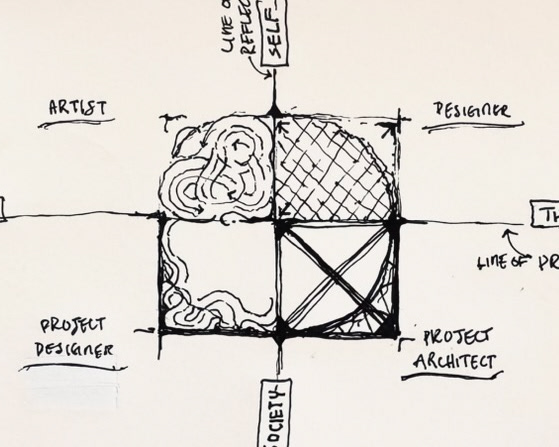 LINE OF
REFLEC
SELF_
ARTIST
DESIGNER
TH
LINE OF PR
PROJECT
DESIGNER
PROJECT
ARCHITECT
OCIETY